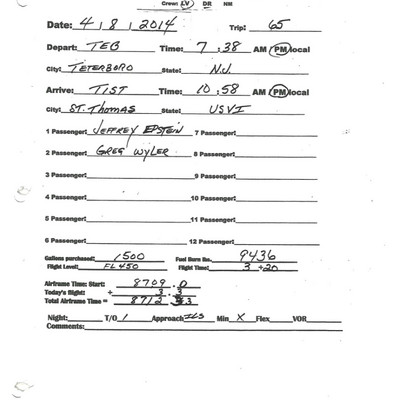 Crew: LV DR NM
Date: 4 / 8 / 2014 Trip: 65
Depart: TEB Time: 7 : 38 AM PM local
City: TETERBORO State: N.J.
Arrive: TIST Time: 10 : 58 AM PM local
City: ST. THOMAS State: USVI
1 Passenger: JEFFREY EPSTEIN 7 Passenger:
2 Passenger: GREG WYLER 8 Passenger:
3 Passenger: 9 Passenger:
4 Passenger: 10 Passenger:
5 Passenger: 11 Passenger:
6 Passenger: 12 Passenger:
Gallons purchased: 1500 Fuel Burn lbs. 9436
Flight Level: FL450 Flight Time: 3 +20
Airframe Time: Start: 8709 . 0
Today's flight: + 3 . 3
Total Airframe Time = 8712 . 3
Night: T/O 1 Approach ILS Min X Flex VOR
Comments: